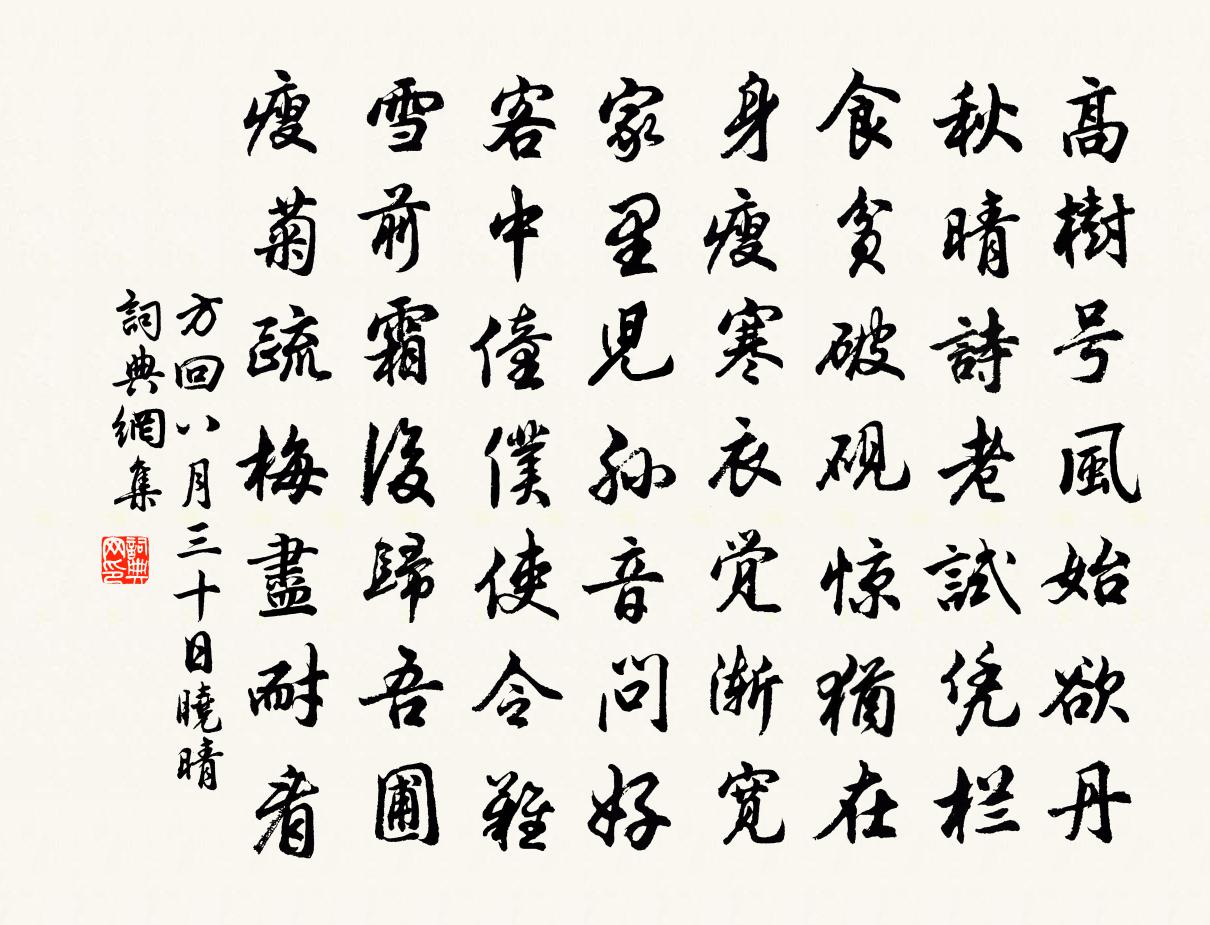 高樹号風始欲丹
秋晴詩老試凭栏
食貧破砚惊猶在
身瘦寒衣觉漸宽
家里児孙音问好
客中僮僕使令難
雪前霜後歸吾圃
瘦菊疏梅盡耐看
方回八月三十日曉晴
詞典網集
詞典
网印